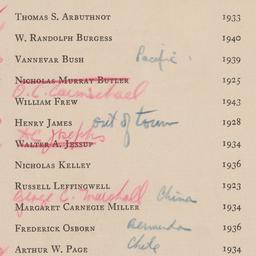 THOMAS S. ARBUTHNOT 1933
W. RANDOLPH BURGESS 1940
VANNEVAR BUSH Pacific. 1939
NICHOLAS MURRAY BUTLER 1925
O.C. Carmichael
WILLIAM FREW 1943
HENRY JAMES out of town 1928
D.C. Josephs
WALTER A. JESSUP 1934
NICHOLAS KELLEY 1936
RUSSELL LEFFINGWELL 1923
George C. Marshall China
MARGARET CARNEGIE MILLER 1934
FREDERICK OSBORN Bermuda 1936
ARTHUR W. PAGE Chile 1934